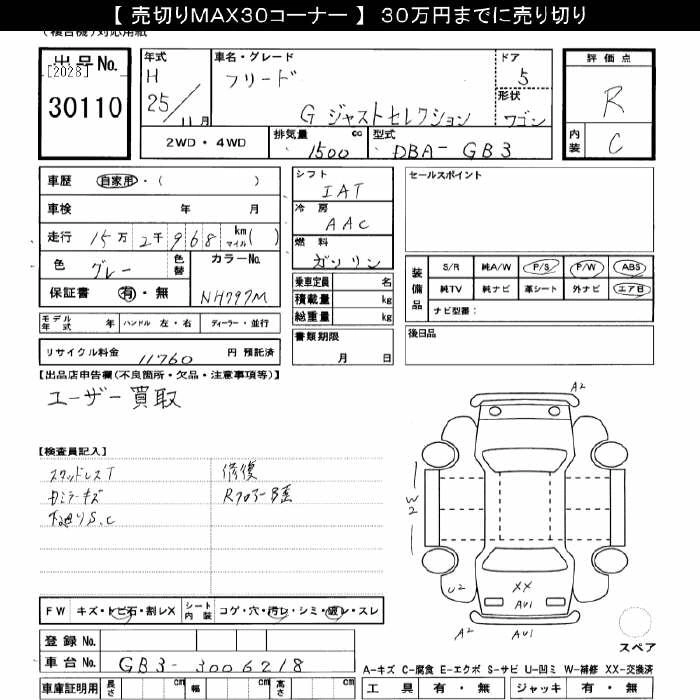 【 売切りMAX30コーナー 】 30万円までに売り切り
(複合機)対応用紙
出品No.
[2028]
30110
年式
H
25/11月
車名・グレード
フリード
G ジャストセレクション
ドア
5
形状
ワゴン
評価点
R
内装
C
2WD・4WD
排気量 1500 cc
型式 DBA- GB3
車歴 自家用・( )
車検 年 月
走行 15万2千968 km マイル( )
色 グレー 色替
カラーNo.
NH797M
保証書 有・無
シフト
IAT
冷房
AAC
燃料
ガソリン
乗車定員 名
積載量 kg
総重量 kg
書類期限
月 日
セールスポイント
装備品
S/R 純A/W P/S P/W ABS
純TV 純ナビ 革シート 外ナビ エアB
ナビ型番:
後日品
モデル年式 年 ハンドル 左・右 ディーラー・並行
リサイクル料金 11760 円 預託済
【出品店申告欄(不良箇所・欠品・注意事項等)】
ユーザー買取
【検査員記入】
スタッドレスT
内ミラーキズ
下廻りS、C
修復
Rフロアー歪
A2
W2
U2
XX
AU1
A2
AU1
スペア
FW キズ・トビ石・割レX シート内装 コゲ・穴・汚レ・シミ・破レ・スレ
登録No.
車台No. GB3-3006218
車庫証明用 長さ cm 幅 cm 高さ cm
A-キズ C-腐食 E-エクボ S-サビ U-凹ミ W-補修 XX-交換済
工具 有・無 ジャッキ 有・無